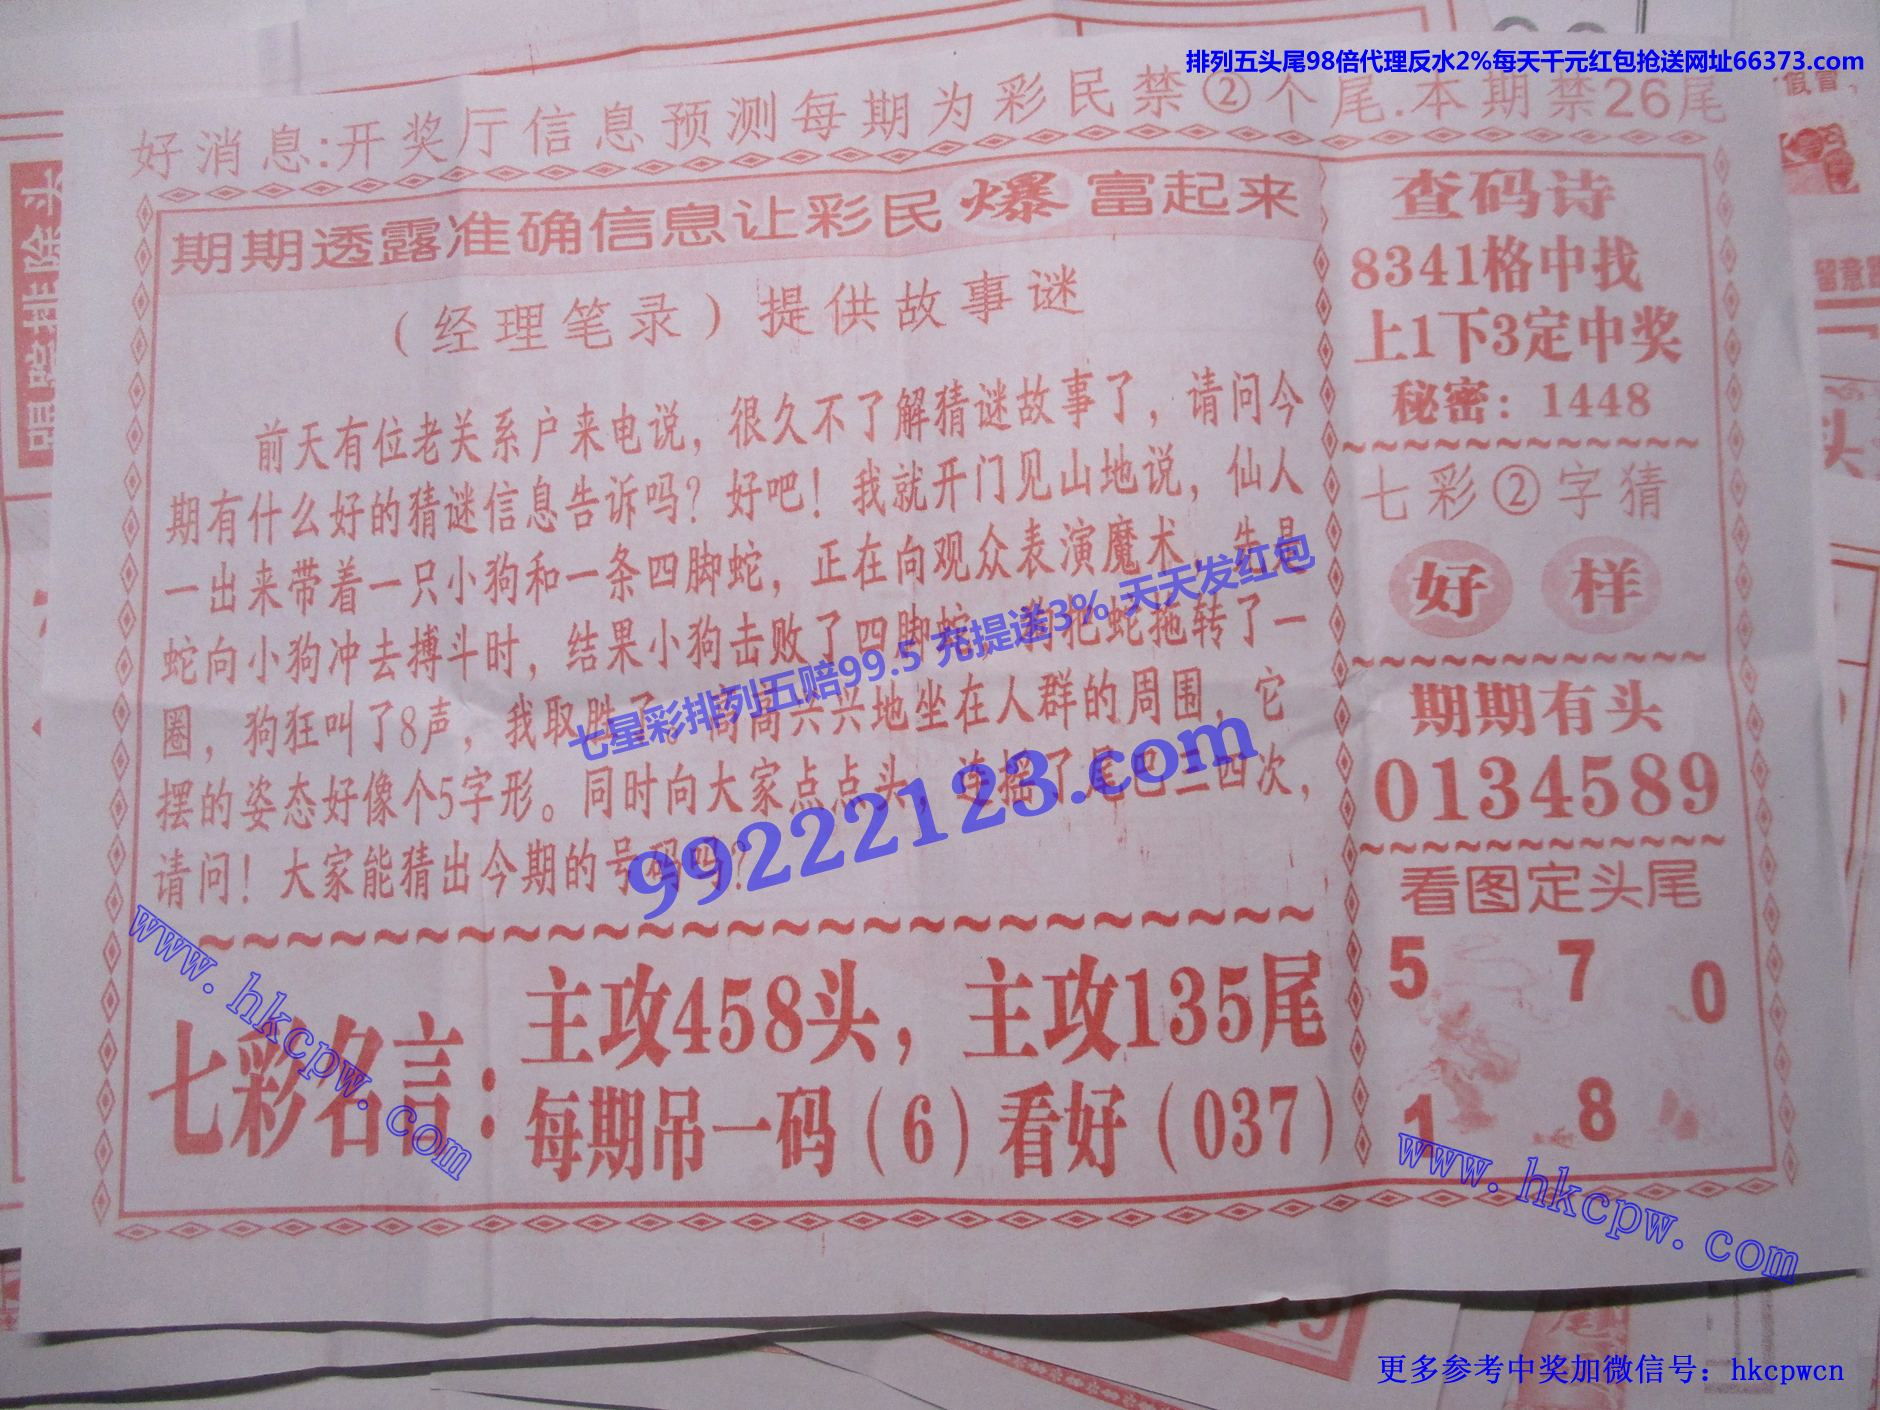 排列五头尾98倍代理反水2%每天千元红包抢送网址66373.com
好消息:开奖厅信息预测每期为彩民禁②个尾.本期禁26尾
期期透露准确信息让彩民爆富起来
（经理笔录）提供故事谜
前天有位老关系户来电说，很久不了解猜谜故事了，请问今
期有什么好的猜谜信息告诉吗？好吧！我就开门见山地说，仙人
一出来带着一只小狗和一条四脚蛇，正在向观众表演魔术，先是
蛇向小狗冲去搏斗时，结果小狗击败了四脚蛇，狗把蛇拖转了一
圈，狗狂叫了8声，我取胜了。高高兴兴地坐在人群的周围，它
摆的姿态好像个5字形。同时向大家点点头，连摇了尾巴三四次，
请问！大家能猜出今期的号码吗？
七星彩排列五赔99.5 充提送3% 天天发红包
99222123.com
七彩名言：
主攻458头，主攻135尾
每期吊一码（6）看好（037）
www.hkcpw.com
查码诗
8341格中找
上1下3定中奖
秘密：1448
七彩②字猜
好 样
期期有头
0134589
看图定头尾
5 7 0
1 8
www.hkcpw.com
更多参考中奖加微信号：hkcpwcn